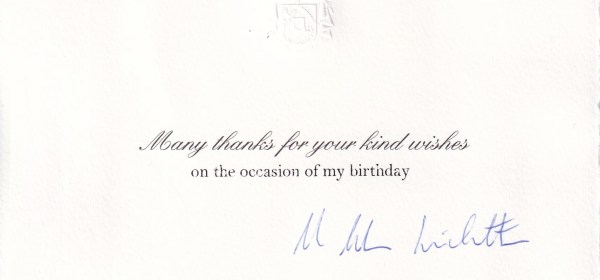 Many thanks for your kind wishes
on the occasion of my birthday